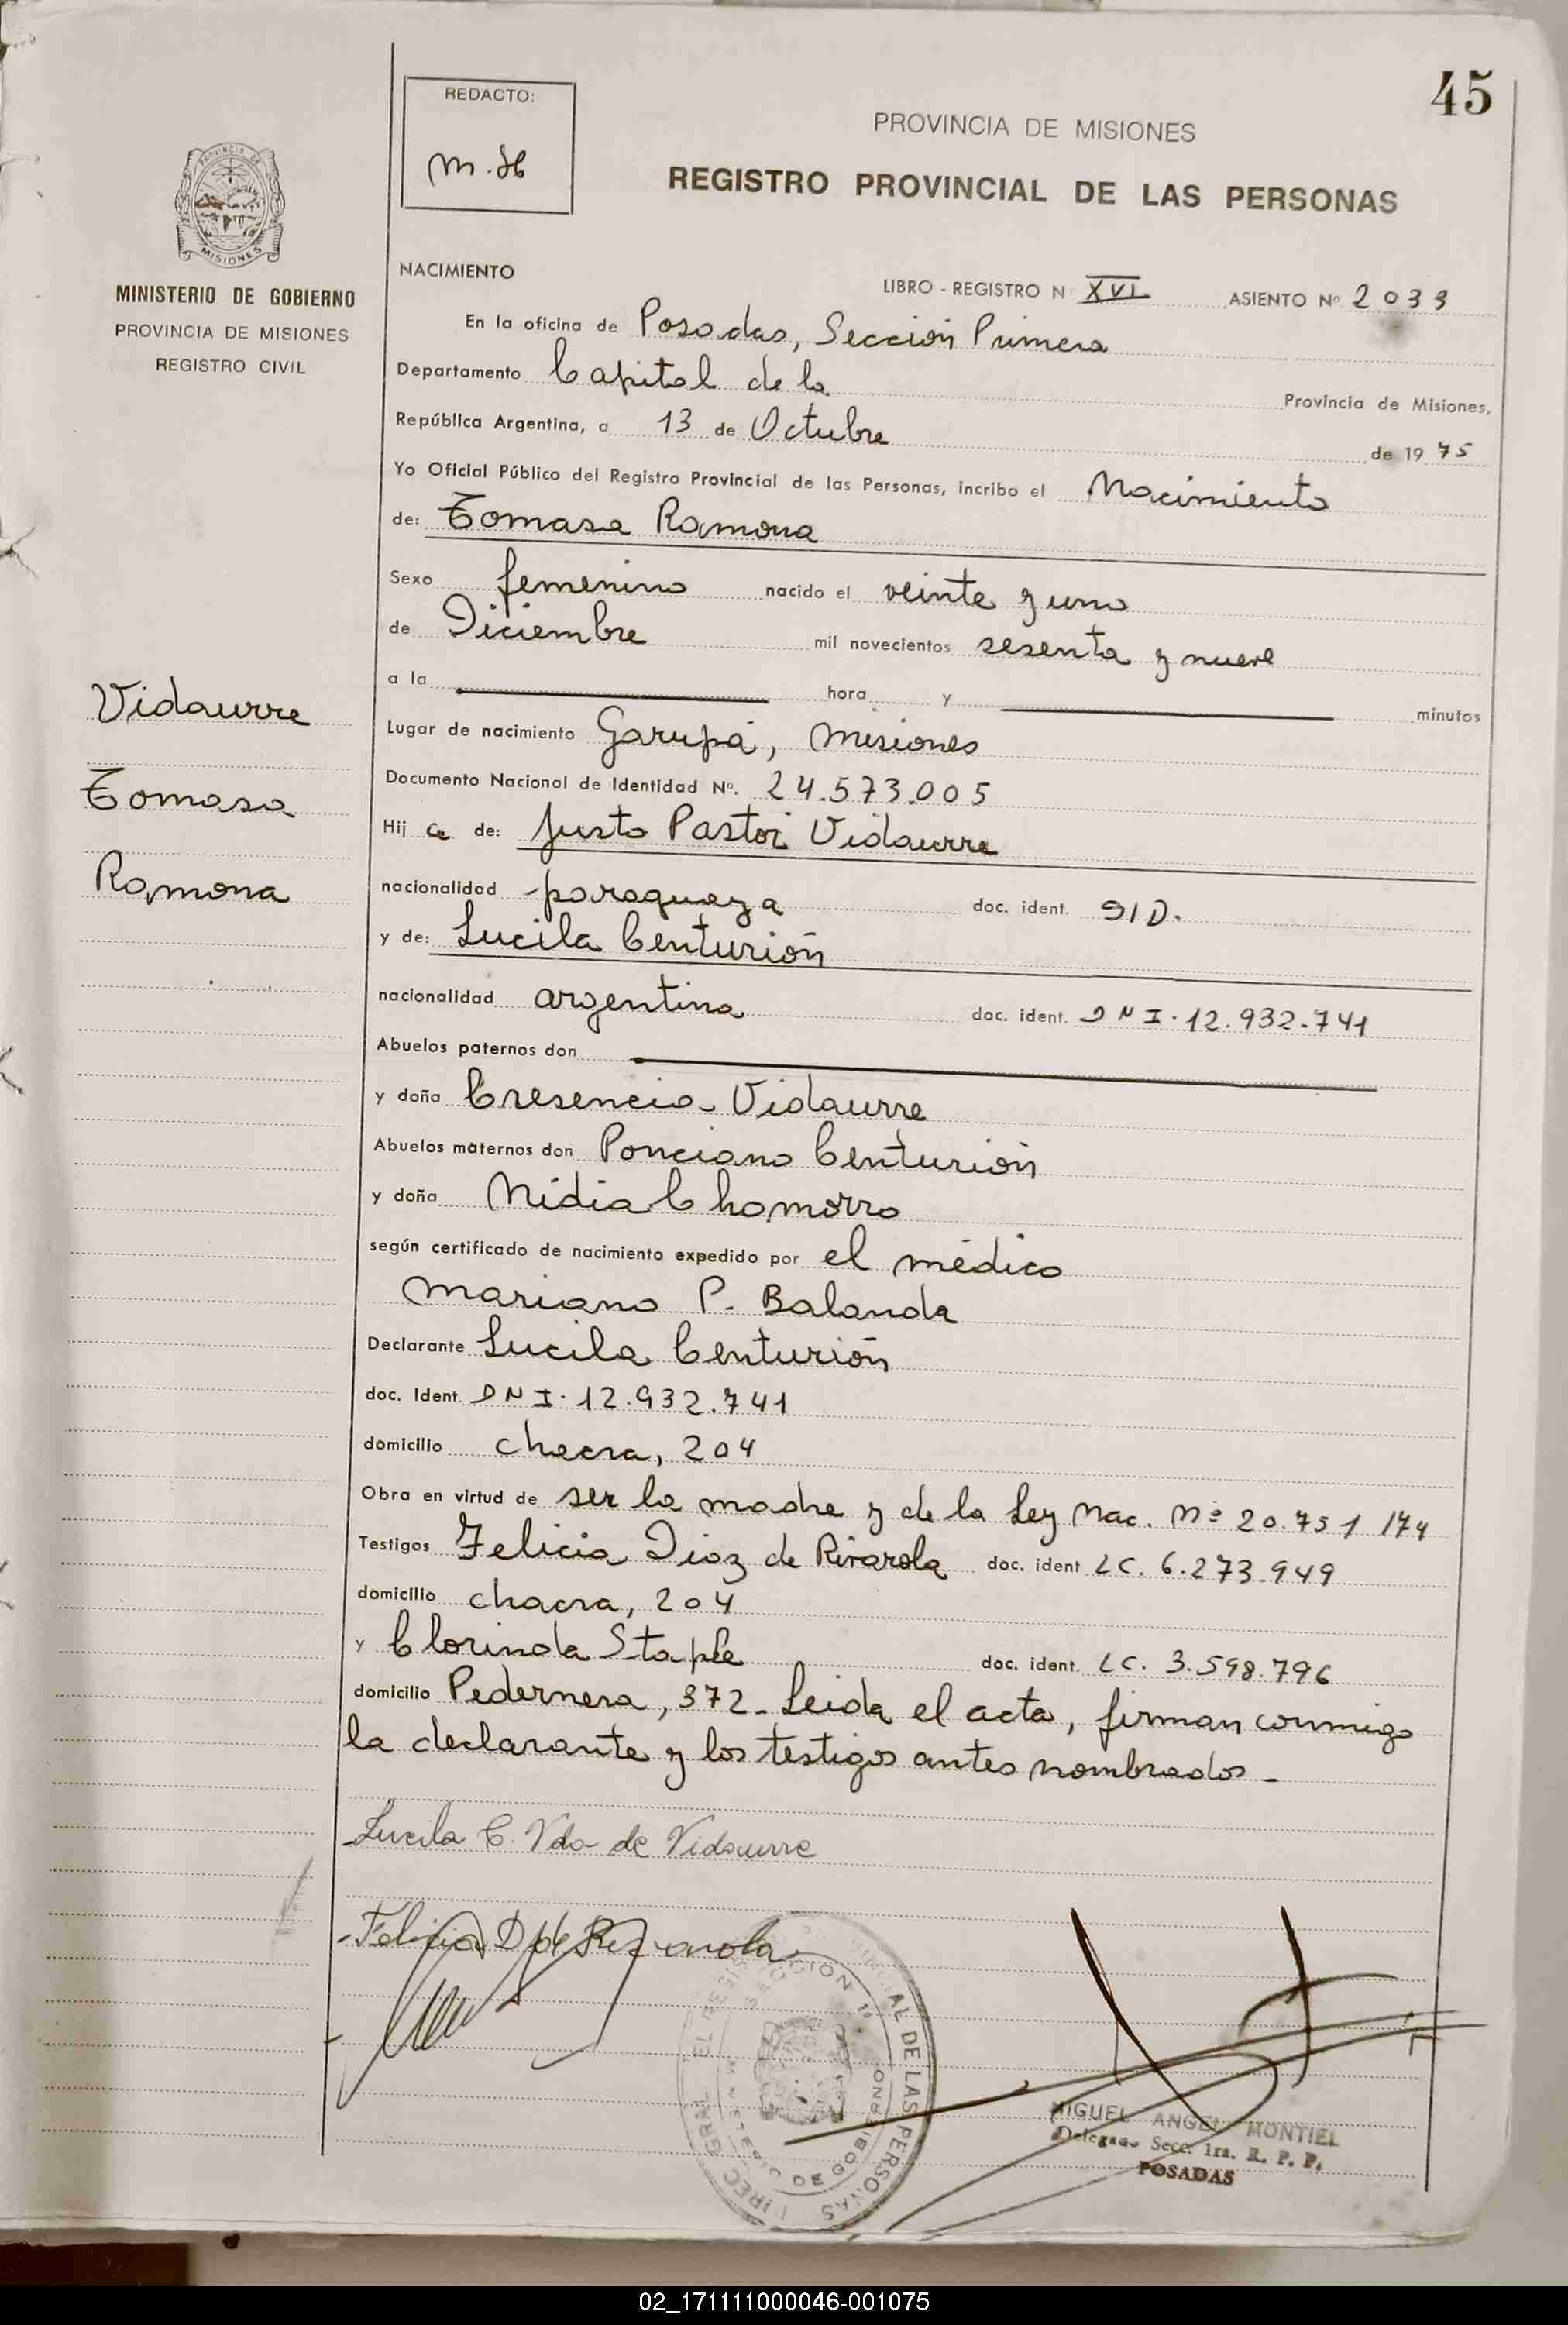 45
REDACTO:
PROVINCIA DE MISIONES
REGISTRO PROVINCIAL DE LAS PERSONAS
PROVINCIA DE
MISIONES
MINISTERIO DE GOBIERNO
PROVINCIA DE MISIONES
REGISTRO CIVIL
NACIMIENTO
LIBRO - REGISTRO N XVI ASIENTO Nº 2033
En la oficina de Posadas, Sección Primera
Departamento Capital de la Provincia de Misiones,
República Argentina, a 13 de Octubre de 1975
Yo Oficial Público del Registro Provincial de las Personas, incribo el Nacimiento
de: Tomasa Ramona
Sexo femenino nacido el veinte y uno
de Diciembre mil novecientos sesenta y nueve
a la hora y minutos
Vidaurre
Tomasa
Ramona
Lugar de nacimiento Garupá, Misiones
Documento Nacional de Identidad Nº. 24.573.005
Hij a de: Justo Pastor Vidaurre
nacionalidad paraguaya doc. ident. S/D.
y de: Lucila Centurión
nacionalidad argentina doc. ident. DNI. 12.932.741
Abuelos paternos don
y doña Cresencia Vidaurre
Abuelos maternos don Ponciano Centurión
y doña Nidia Chamorro
según certificado de nacimiento expedido por el médico
Mariano P. Balanda
Declarante Lucila Centurión
doc. Ident. DNI. 12.932.741
domicilio chacra, 204
Obra en virtud de ser la madre y de la Ley Nac. Nº 20.751/74
Testigos Felicia Diaz de Rivarola doc. ident LC. 6.273.949
domicilio chacra, 204
y Clorinda Staple doc. ident. LC. 3.598.796
domicilio Pedernera, 372. Leida el acta, firman conmigo
la declarante y los testigos antes nombrados.
Lucila C. Vda de Vidaurre
Felicia D de Rivarola
MIGUEL ANGEL MONTIEL
Delegado Secc. 1ra. R. P. P.
POSADAS
02_171111000046-001075